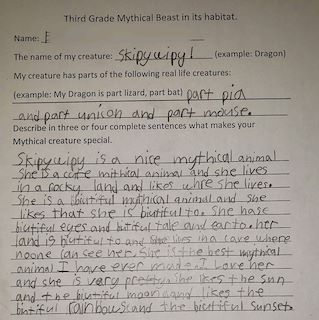 Third Grade Mythical Beast in its habitat.
Name: E
The name of my creature: Skipywipy! (example: Dragon)
My creature has parts of the following real life creatures:
(example: My Dragon is part lizard, part bat) part pig
and part unicon and part mouse.
Describe in three or four complete sentences what makes your
Mythical creature special.
Skipywipy is a nice mythical animal
She is a cute mithical animal and she lives
in a rocky land and likes whre she lives.
She is a biutiful mythical animal and she
likes that she is biutiful to. She hase
biutiful eyes and butiful tale and ear to. her
land is biutiful to and she lives in a cave where
noone can see her. She is the best mythical
animal I have ever made. I Love her
and she is very pretty. she likes the sun
and the biutiful moon and likes the
biutiful rainbows and the biutiful sunsets